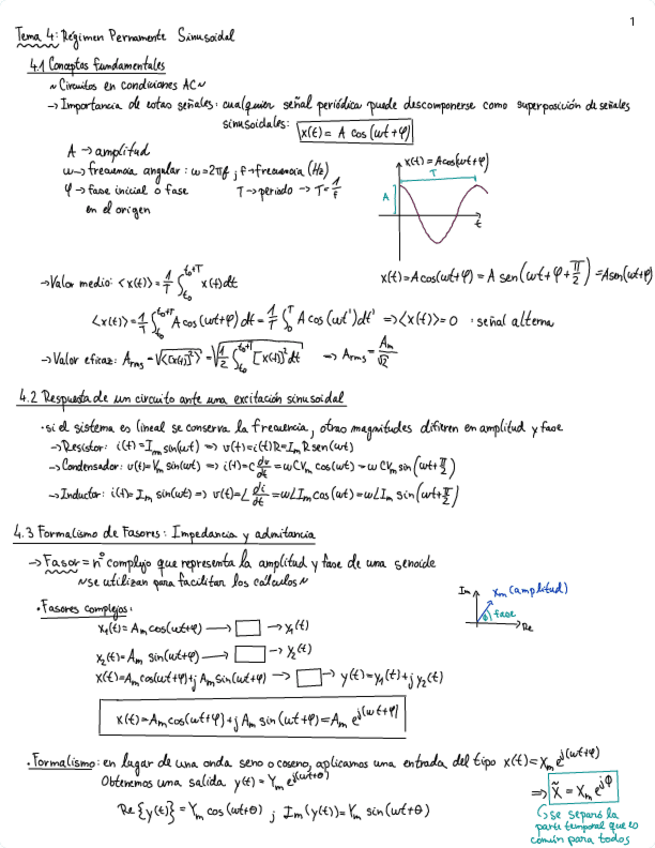 1
Tema 4: Régimen Permanente Sinusoidal
4.1 Conceptos fundamentales
~ Circuitos en condiciones AC ~
→ Importancia de estas señales: cualquier señal periódica puede descomponerse como superposición de señales
sinusoidales: x(t) = A cos(ωt+φ)
A → amplitud
ω → frecuencia angular: ω=2πf ; f → frecuencia (Hz)
φ → fase inicial o fase T → periodo → T=1/f
en el origen
x(t) = A cos(ωt+φ)
T
A
t
→ Valor medio: <x(t)> = 1/T ∫_{t₀}^{t₀+T} x(t)dt
x(t) = A cos(ωt+φ) = A sen(ωt+φ+π/2) = A sen(ωt+φ)
<x(t)> = 1/T ∫_{t₀}^{t₀+T} A cos(ωt+φ) dt = 1/T ∫_0^T A cos(ωt') dt' => <x(t)> = 0 : señal alterna
→ Valor eficaz: A_rms = √<[x(t)]²> = √(1/2 ∫_{t₀}^{t₀+T} [x(t)]² dt) → A_rms = A_m/√2
4.2 Respuesta de un circuito ante una excitación sinusoidal
· si el sistema es lineal se conserva la frecuencia, otras magnitudes difieren en amplitud y fase
→ Resistor: i(t) = I_m sin(ωt) => v(t) = i(t)R = I_m R sen(ωt)
→ Condensador: v(t) = V_m sin(ωt) => i(t) = C dv/dt = ωCV_m cos(ωt) = ωCV_m sin(ωt+π/2)
→ Inductor: i(t) = I_m sin(ωt) => v(t) = L di/dt = ωLI_m cos(ωt) = ωLI_m sin(ωt+π/2)
4.3 Formalismo de Fasores: Impedancia y admitancia
→ Fasor = nº complejo que representa la amplitud y fase de una senoide
~ se utilizan para facilitar los cálculos ~
Im
x_m (amplitud)
φ) fase
Re
· Fasores complejos:
x₁(t) = A_m cos(ωt+φ) → □ → y₁(t)
x₂(t) = A_m sin(ωt+φ) → □ → y₂(t)
x(t) = A_m cos(ωt+φ) + j A_m sin(ωt+φ) → □ → y(t) = y₁(t) + j y₂(t)
x(t) = A_m cos(ωt+φ) + j A_m sin(ωt+φ) = A_m e^{j(ωt+φ)}
· Formalismo: en lugar de una onda seno o coseno, aplicamos una entrada del tipo x(t) = X_m e^{j(ωt+φ)}
Obtenemos una salida y(t) = Y_m e^{j(ωt+θ)}
=> X̃ = X_m e^{jφ}
Re{y(t)} = Y_m cos(ωt+θ) ; Im(y(t)) = Y_m sin(ωt+θ)
↳ se separó la
parte temporal que es
común para todos